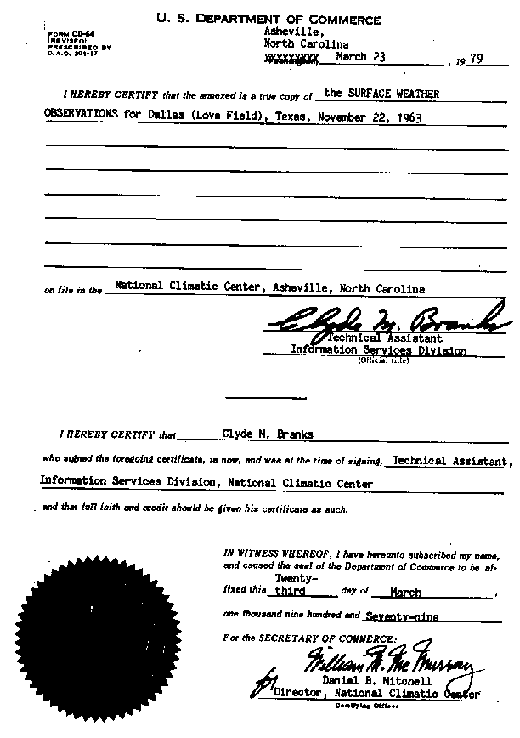 U. S. DEPARTMENT OF COMMERCE
FORM CD-64
(REVISED)
PRESCRIBED BY
D.A.O. 201-17
Asheville,
North Carolina
March 23, 1979
I HEREBY CERTIFY that the annexed is a true copy of the SURFACE WEATHER
OBSERVATIONS for Dallas (Love Field), Texas, November 22, 1963
on file in the National Climatic Center, Asheville, North Carolina
Clyde M. Branks
Technical Assistant
Information Services Division
(Official title)
I HEREBY CERTIFY that Clyde M. Branks
who signed the foregoing certificate, is now, and was at the time of signing, Technical Assistant,
Information Services Division, National Climatic Center
and that full faith and credit should be given his certificate as such.
IN WITNESS WHEREOF, I have hereunto subscribed my name,
and caused the seal of the Department of Commerce to be af-
Twenty-
fixed this third day of March,
one thousand nine hundred and Seventy-nine
For the SECRETARY OF COMMERCE:
William M. McMurray
Daniel B. Mitchell
for Director, National Climatic Center
Certifying Officer